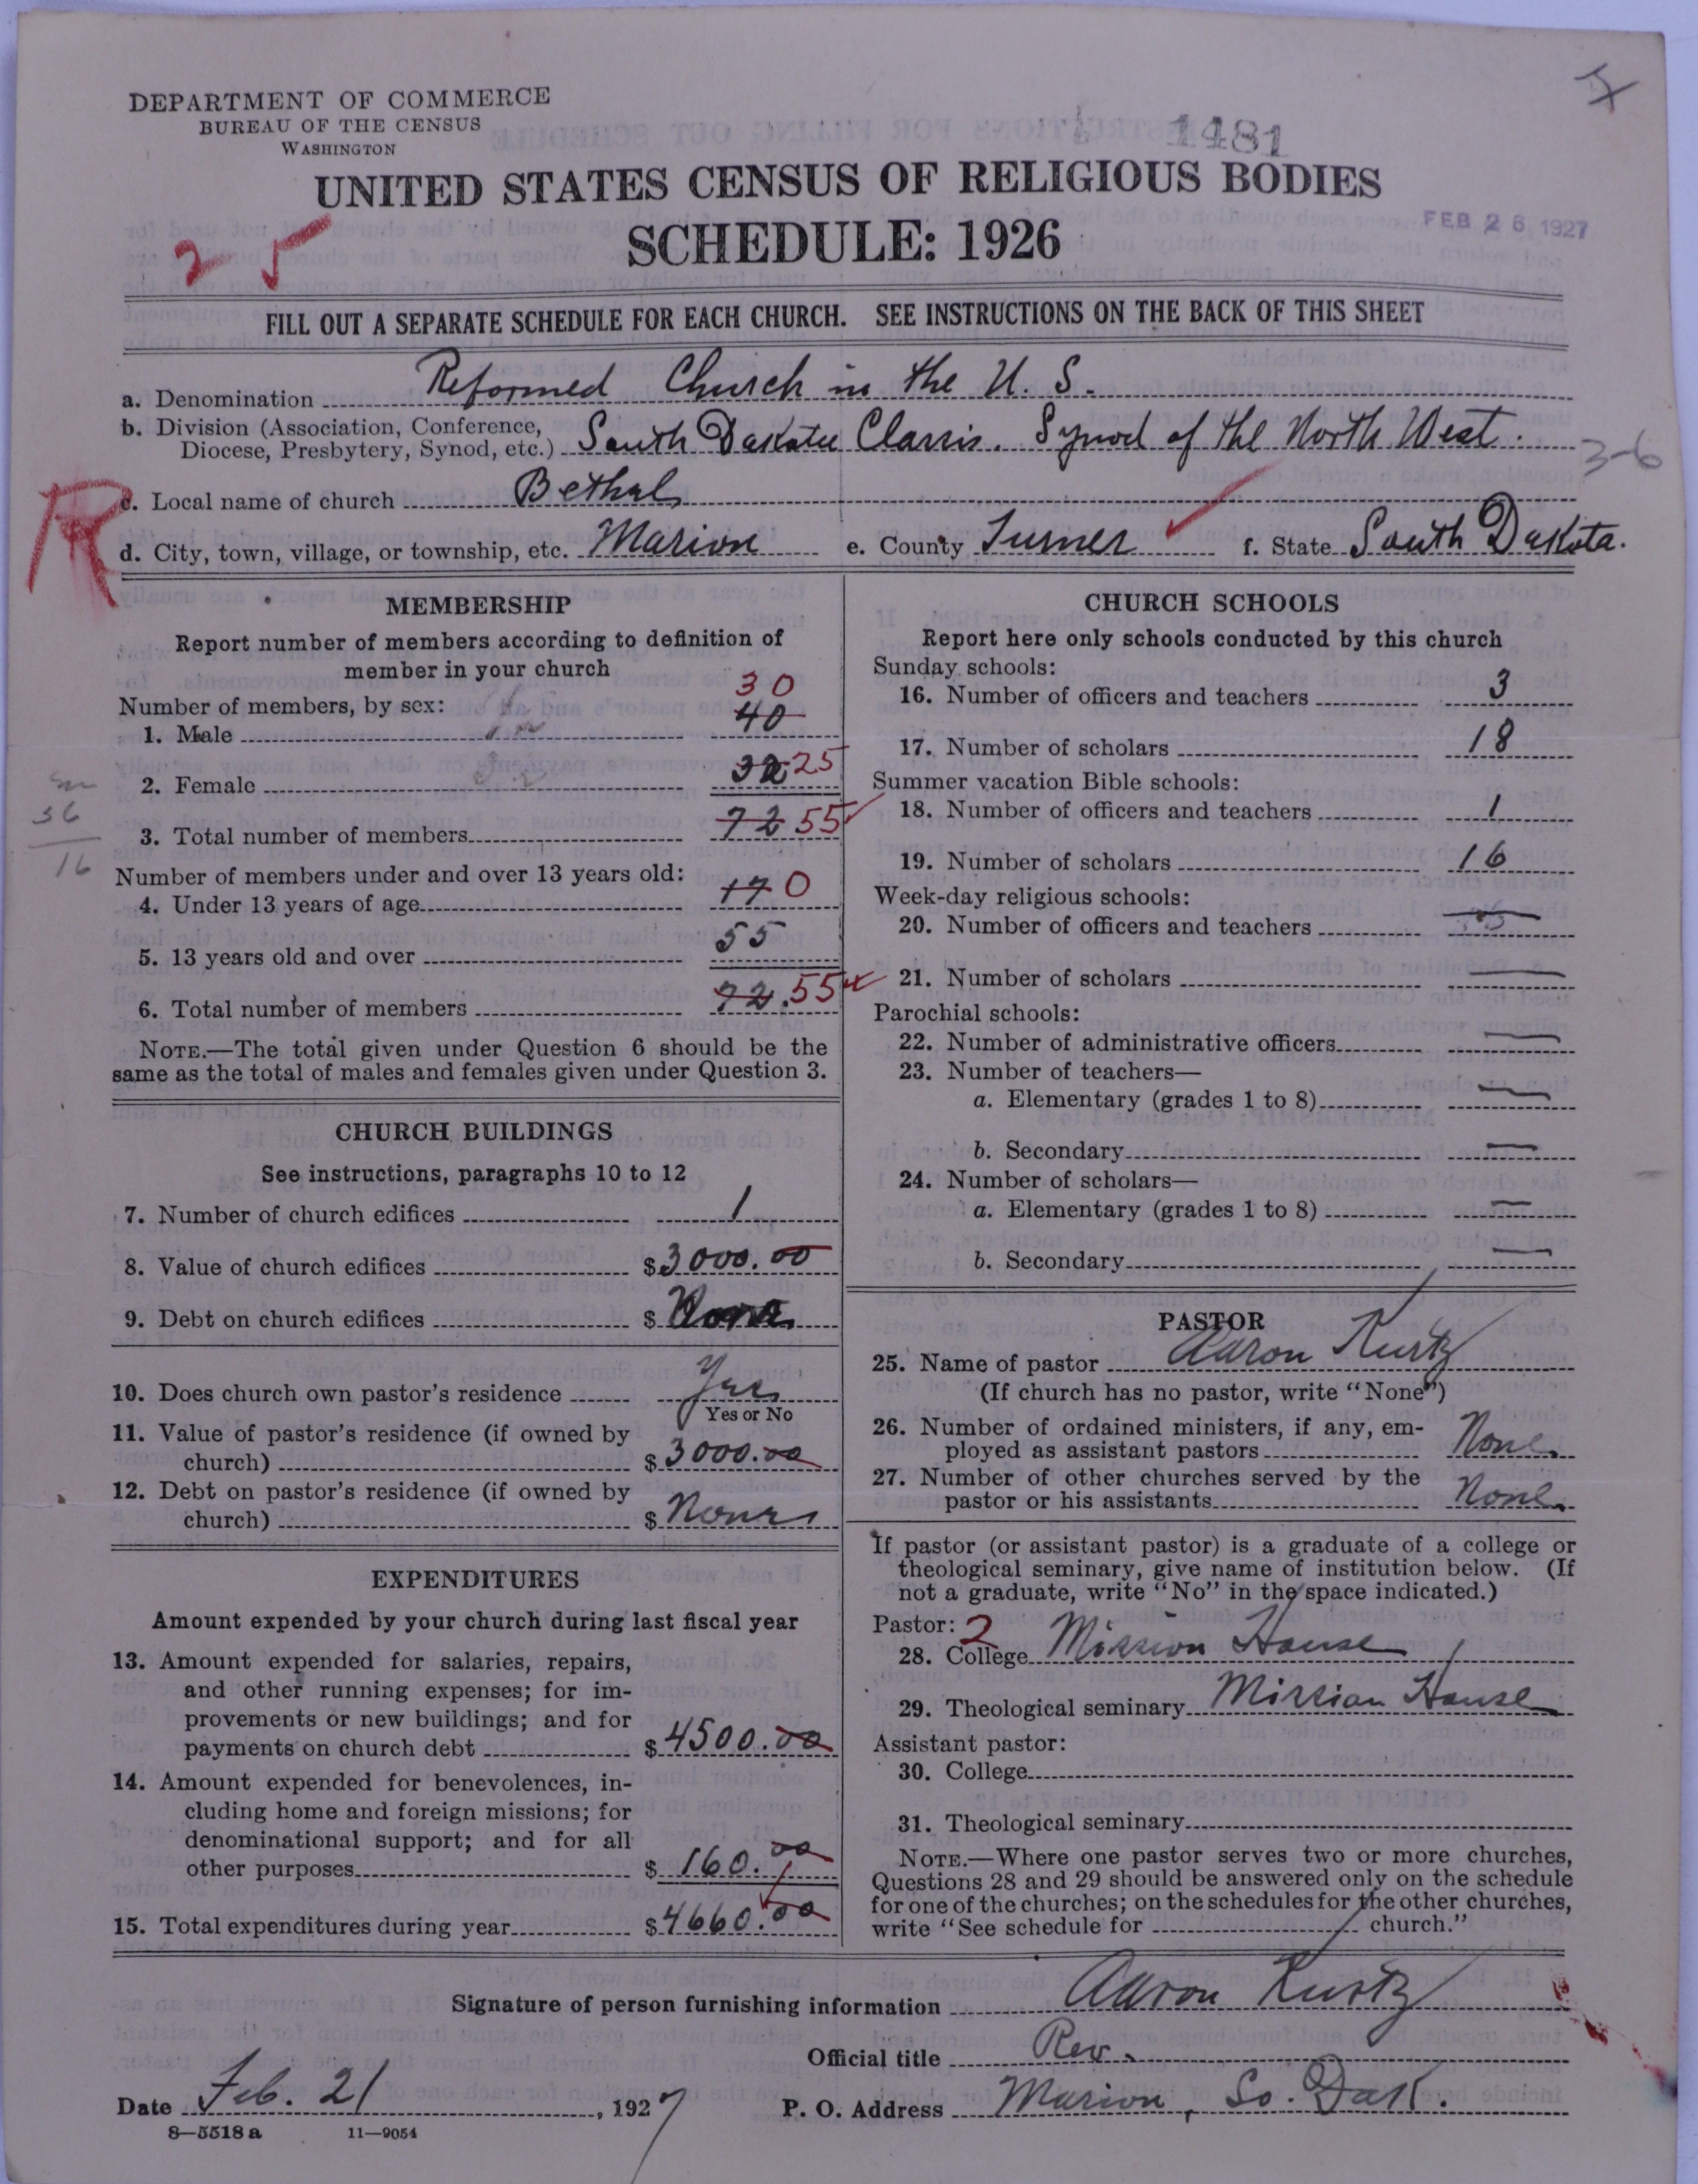 DEPARTMENT OF COMMERCE
BUREAU OF THE CENSUS
WASHINGTON
1481
UNITED STATES CENSUS OF RELIGIOUS BODIES
SCHEDULE: 1926
FEB 26 1927
2 5
FILL OUT A SEPARATE SCHEDULE FOR EACH CHURCH. SEE INSTRUCTIONS ON THE BACK OF THIS SHEET
a. Denomination Reformed Church in the U. S.
b. Division (Association, Conference,
Diocese, Presbytery, Synod, etc.) South Dakota Classis. Synod of the North West.
3-6
R
c. Local name of church Bethel
d. City, town, village, or township, etc. Marion e. County Turner f. State South Dakota.
MEMBERSHIP
Report number of members according to definition of
member in your church
Number of members, by sex:
30
1. Male 40
2. Female 32 25
3. Total number of members 72 55
36
16
Number of members under and over 13 years old:
4. Under 13 years of age 17 0
5. 13 years old and over 55
6. Total number of members 72. 55
NOTE.—The total given under Question 6 should be the
same as the total of males and females given under Question 3.
CHURCH BUILDINGS
See instructions, paragraphs 10 to 12
7. Number of church edifices 1
8. Value of church edifices $3000.00
9. Debt on church edifices $ None
10. Does church own pastor's residence Yes
Yes or No
11. Value of pastor's residence (if owned by
church) $3000.00
12. Debt on pastor's residence (if owned by
church) $ None
EXPENDITURES
Amount expended by your church during last fiscal year
13. Amount expended for salaries, repairs,
and other running expenses; for im-
provements or new buildings; and for
payments on church debt $4500.00
14. Amount expended for benevolences, in-
cluding home and foreign missions; for
denominational support; and for all
other purposes $ 160.00
15. Total expenditures during year $4660.00
CHURCH SCHOOLS
Report here only schools conducted by this church
Sunday schools:
16. Number of officers and teachers 3
17. Number of scholars 18
Summer vacation Bible schools:
18. Number of officers and teachers 1
19. Number of scholars 16
Week-day religious schools:
20. Number of officers and teachers —
21. Number of scholars —
Parochial schools:
22. Number of administrative officers —
23. Number of teachers—
a. Elementary (grades 1 to 8) —
b. Secondary —
24. Number of scholars—
a. Elementary (grades 1 to 8) —
b. Secondary —
PASTOR
25. Name of pastor Aaron Kurtz
(If church has no pastor, write "None")
26. Number of ordained ministers, if any, em-
ployed as assistant pastors None.
27. Number of other churches served by the
pastor or his assistants None.
If pastor (or assistant pastor) is a graduate of a college or
theological seminary, give name of institution below. (If
not a graduate, write "No" in the space indicated.)
Pastor: 2
28. College Mission House
29. Theological seminary Mission House
Assistant pastor:
30. College
31. Theological seminary
NOTE.—Where one pastor serves two or more churches,
Questions 28 and 29 should be answered only on the schedule
for one of the churches; on the schedules for the other churches,
write "See schedule for church."
Signature of person furnishing information Aaron Kurtz
Official title Rev.
Date Feb. 21, 1927 P. O. Address Marion, So. Dak.
8—5518 a 11—9054